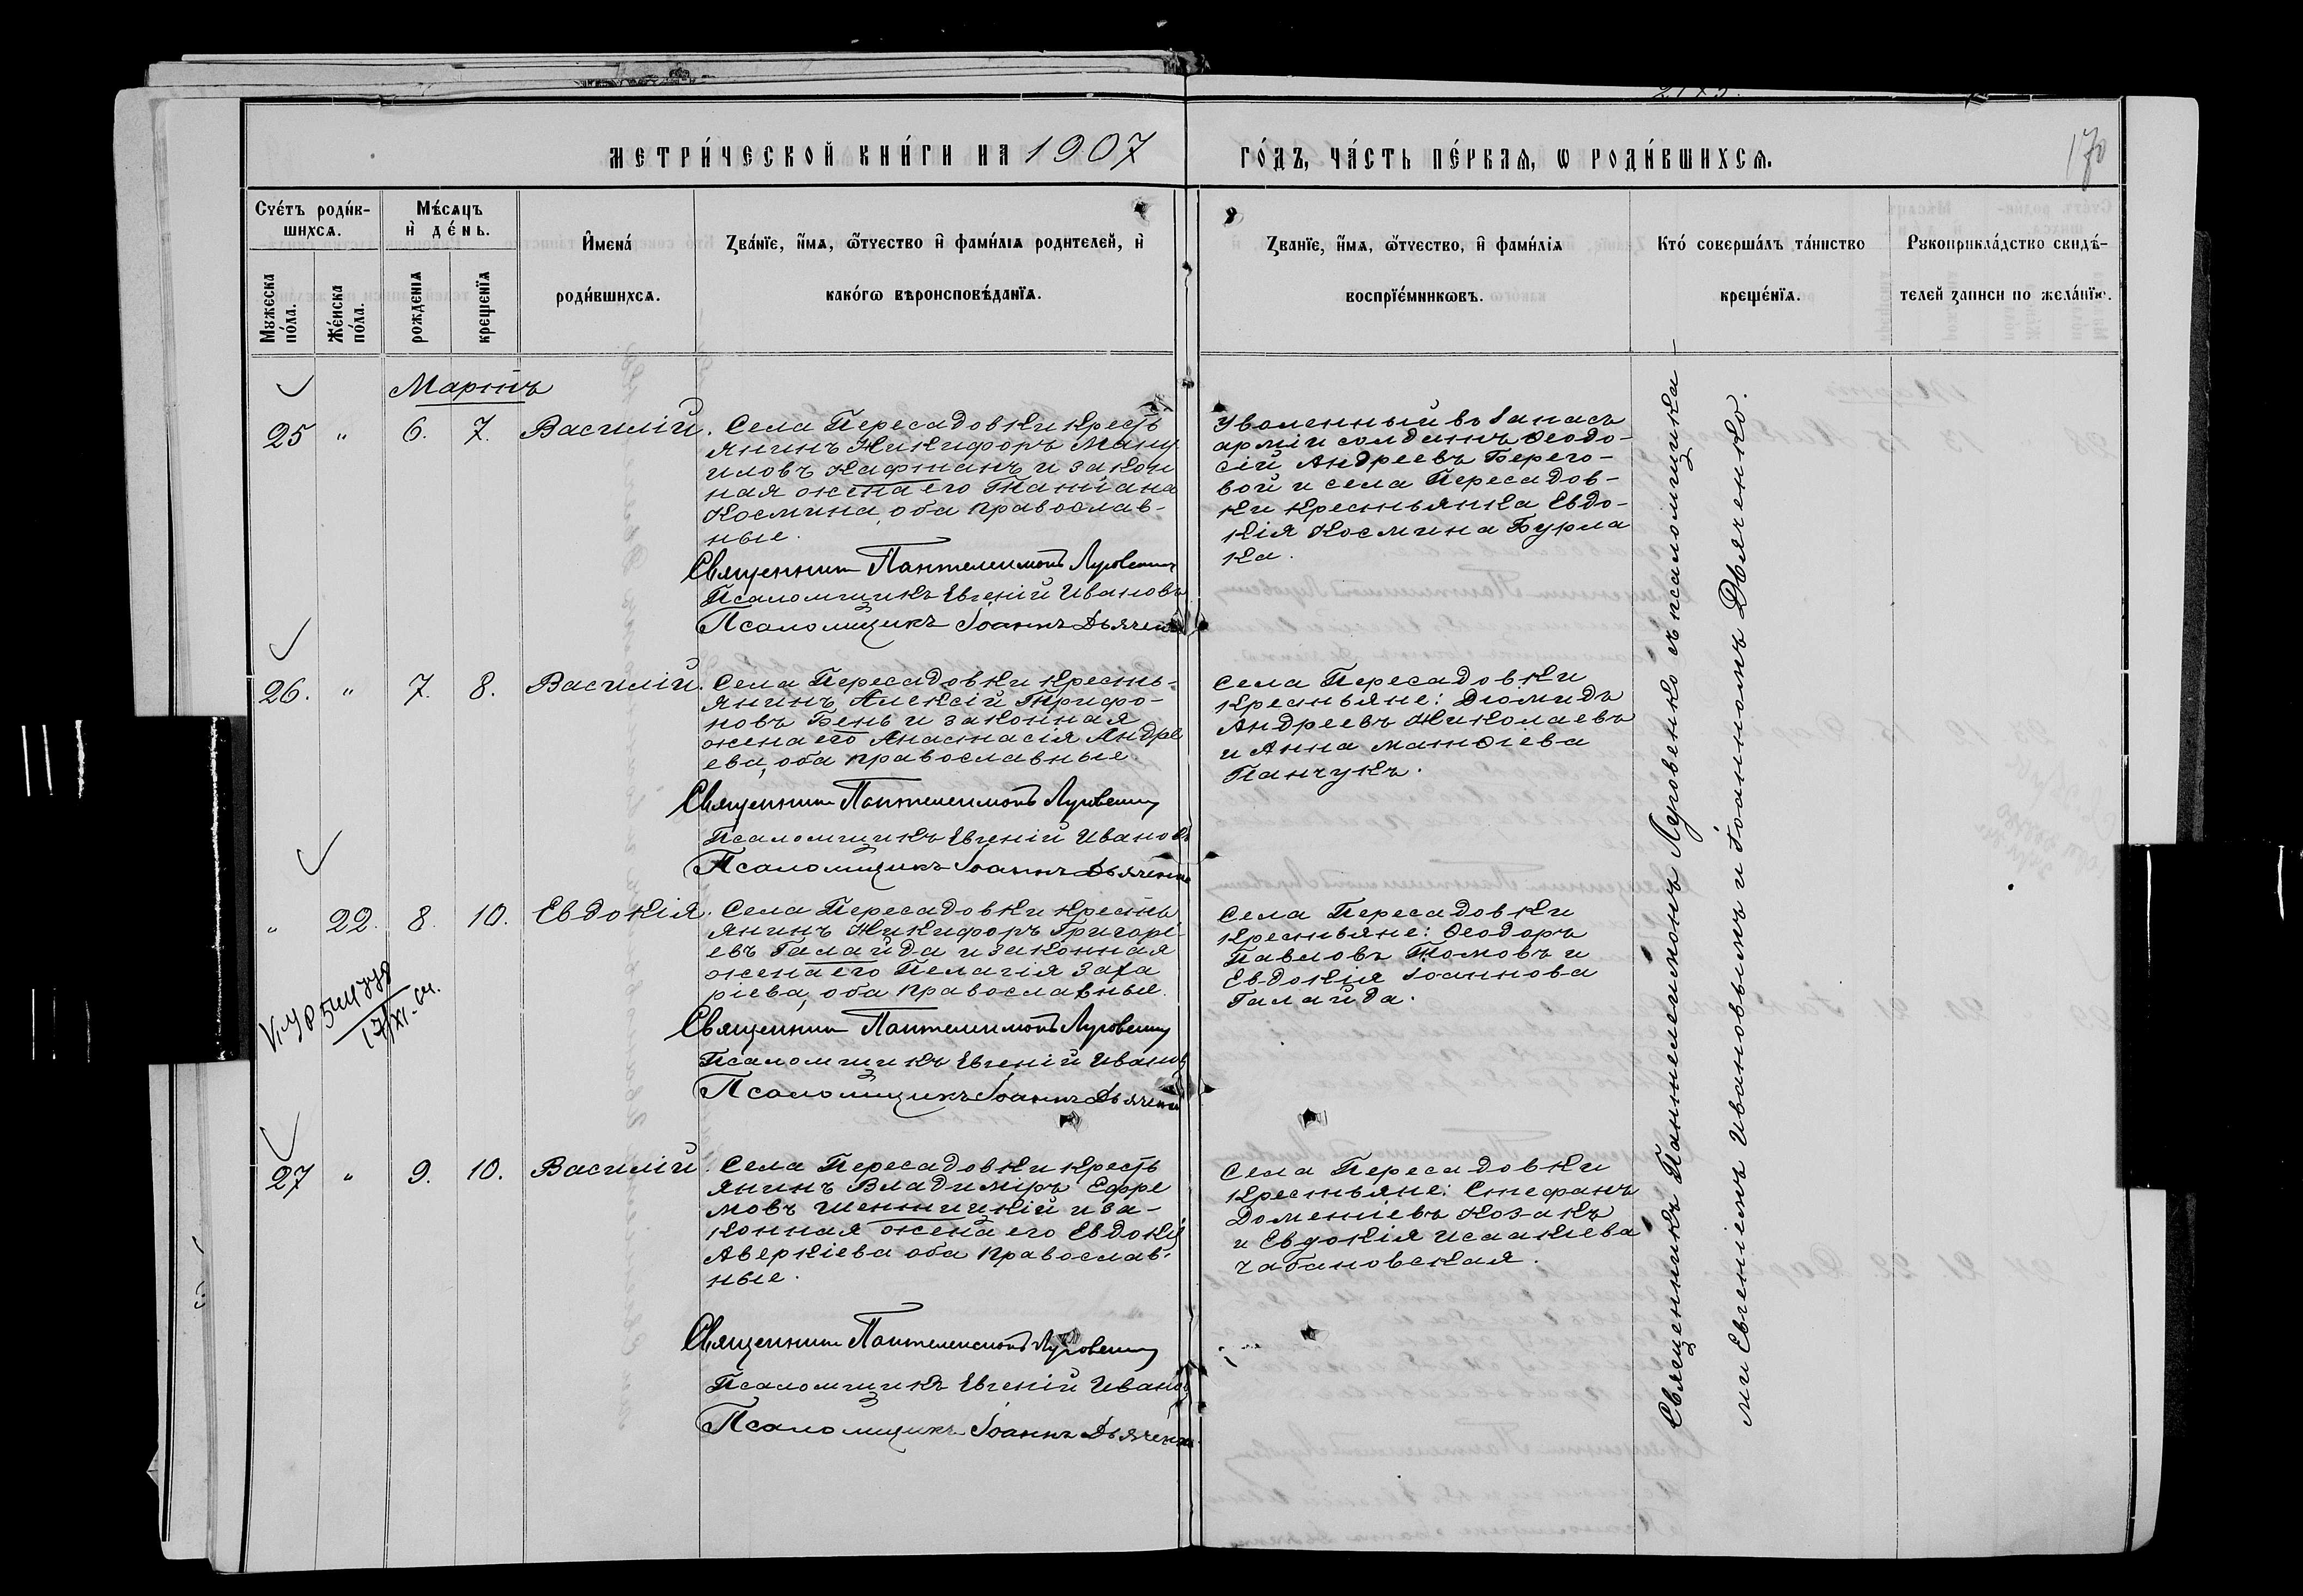 МЕТРИ́ЧЕСКОЙ КНИ́ГИ НА 1907 ГО́ДЪ, ЧА́СТЬ ПЕ́РВАѦ, Ѡ РОДИ́ВШИХСѦ.
170
Сче́тъ роди́в-
шихсѧ.
Мꙋжеска
по́ла.
Же́нска
по́ла.
Мѣ́сѧцъ
и҆ де́нь.
рожденїѧ
крещенїѧ
И҆мена́
роди́вшихсѧ.
Зва́нїе, и҆́мѧ, ѿчество и҆ фами́лїѧ родителей, и҆
како́гѡ вѣроисповѣ́данїѧ.
Зва́нїе, и҆́мѧ, ѿчество, и҆ фами́лїѧ
воспрїе́мникѡвъ.
Кто́ соверша́лъ та́инство
креще́нїѧ.
Рꙋкоприкла́дство свидѣ́-
телей записи по жела́нїю.
Мартъ
25 " 6. 7. Василій.
Села Пересадовки кресть
янинъ Никифоръ Ману
иловъ Кафтанъ и закон
ная жена его Татіана
Космина, оба православ-
ные.
Священник Пантелеимонъ Луговенко
Псаломщикъ Евгеній Ивановъ
Псаломщикъ Іоаннъ Дьяченко
Уволенный въ запасъ
арміи солдатъ Ѳеодо-
сій Андреевъ Берего-
вой и села Пересадов-
ки крестьянка Евдо-
кія Космина Бурла
ка.
26. " 7. 8. Василій.
Села Пересадовки кресть-
янинъ Алексій Трифо-
новъ Бень и законная
жена его Анастасія Андре
ева, оба православные.
Священник Пантелеимонъ Луговенко
Псаломщикъ Евгеній Ивановъ
Псаломщикъ Іоаннъ Дьяченко
Села Пересадовки
крестьяне: Діомидъ
Андреевъ Николаевъ
и Анна Матѳіева
Панчукъ.
" 22. 8. 10. Евдокія.
Села Пересадовки кресть
янинъ Никифоръ Григорі
евъ Галайда и законная
жена его Пелагія Заха
ріева, оба православные.
Священник Пантелеимонъ Луговенко
Псаломщикъ Евгеній Ивановъ
Псаломщикъ Іоаннъ Дьяченко
Села Пересадовки
крестьяне: Ѳеодоръ
Павловъ Томовъ и
Евдокія Іоаннова
Галайда.
27 " 9. 10. Василій.
Села Пересадовки кресть
янинъ Владиміръ Ефре
мовъ Шептицкій и за-
конная жена его Евдокія
Аверкіева оба православ-
ные.
Священник Пантелеимонъ Луговенко
Псаломщикъ Евгеній Ивановъ
Псаломщикъ Іоаннъ Дьяченко
Села Пересадовки
крестьяне: Стефанъ
Доментіевъ Козакъ
и Евдокія Исаакіева
Чабановская.
Священникъ Пантелеимонъ Луговенко съ псаломщика-
ми Евгеніемъ Ивановымъ и Іоанномъ Дьяченко.